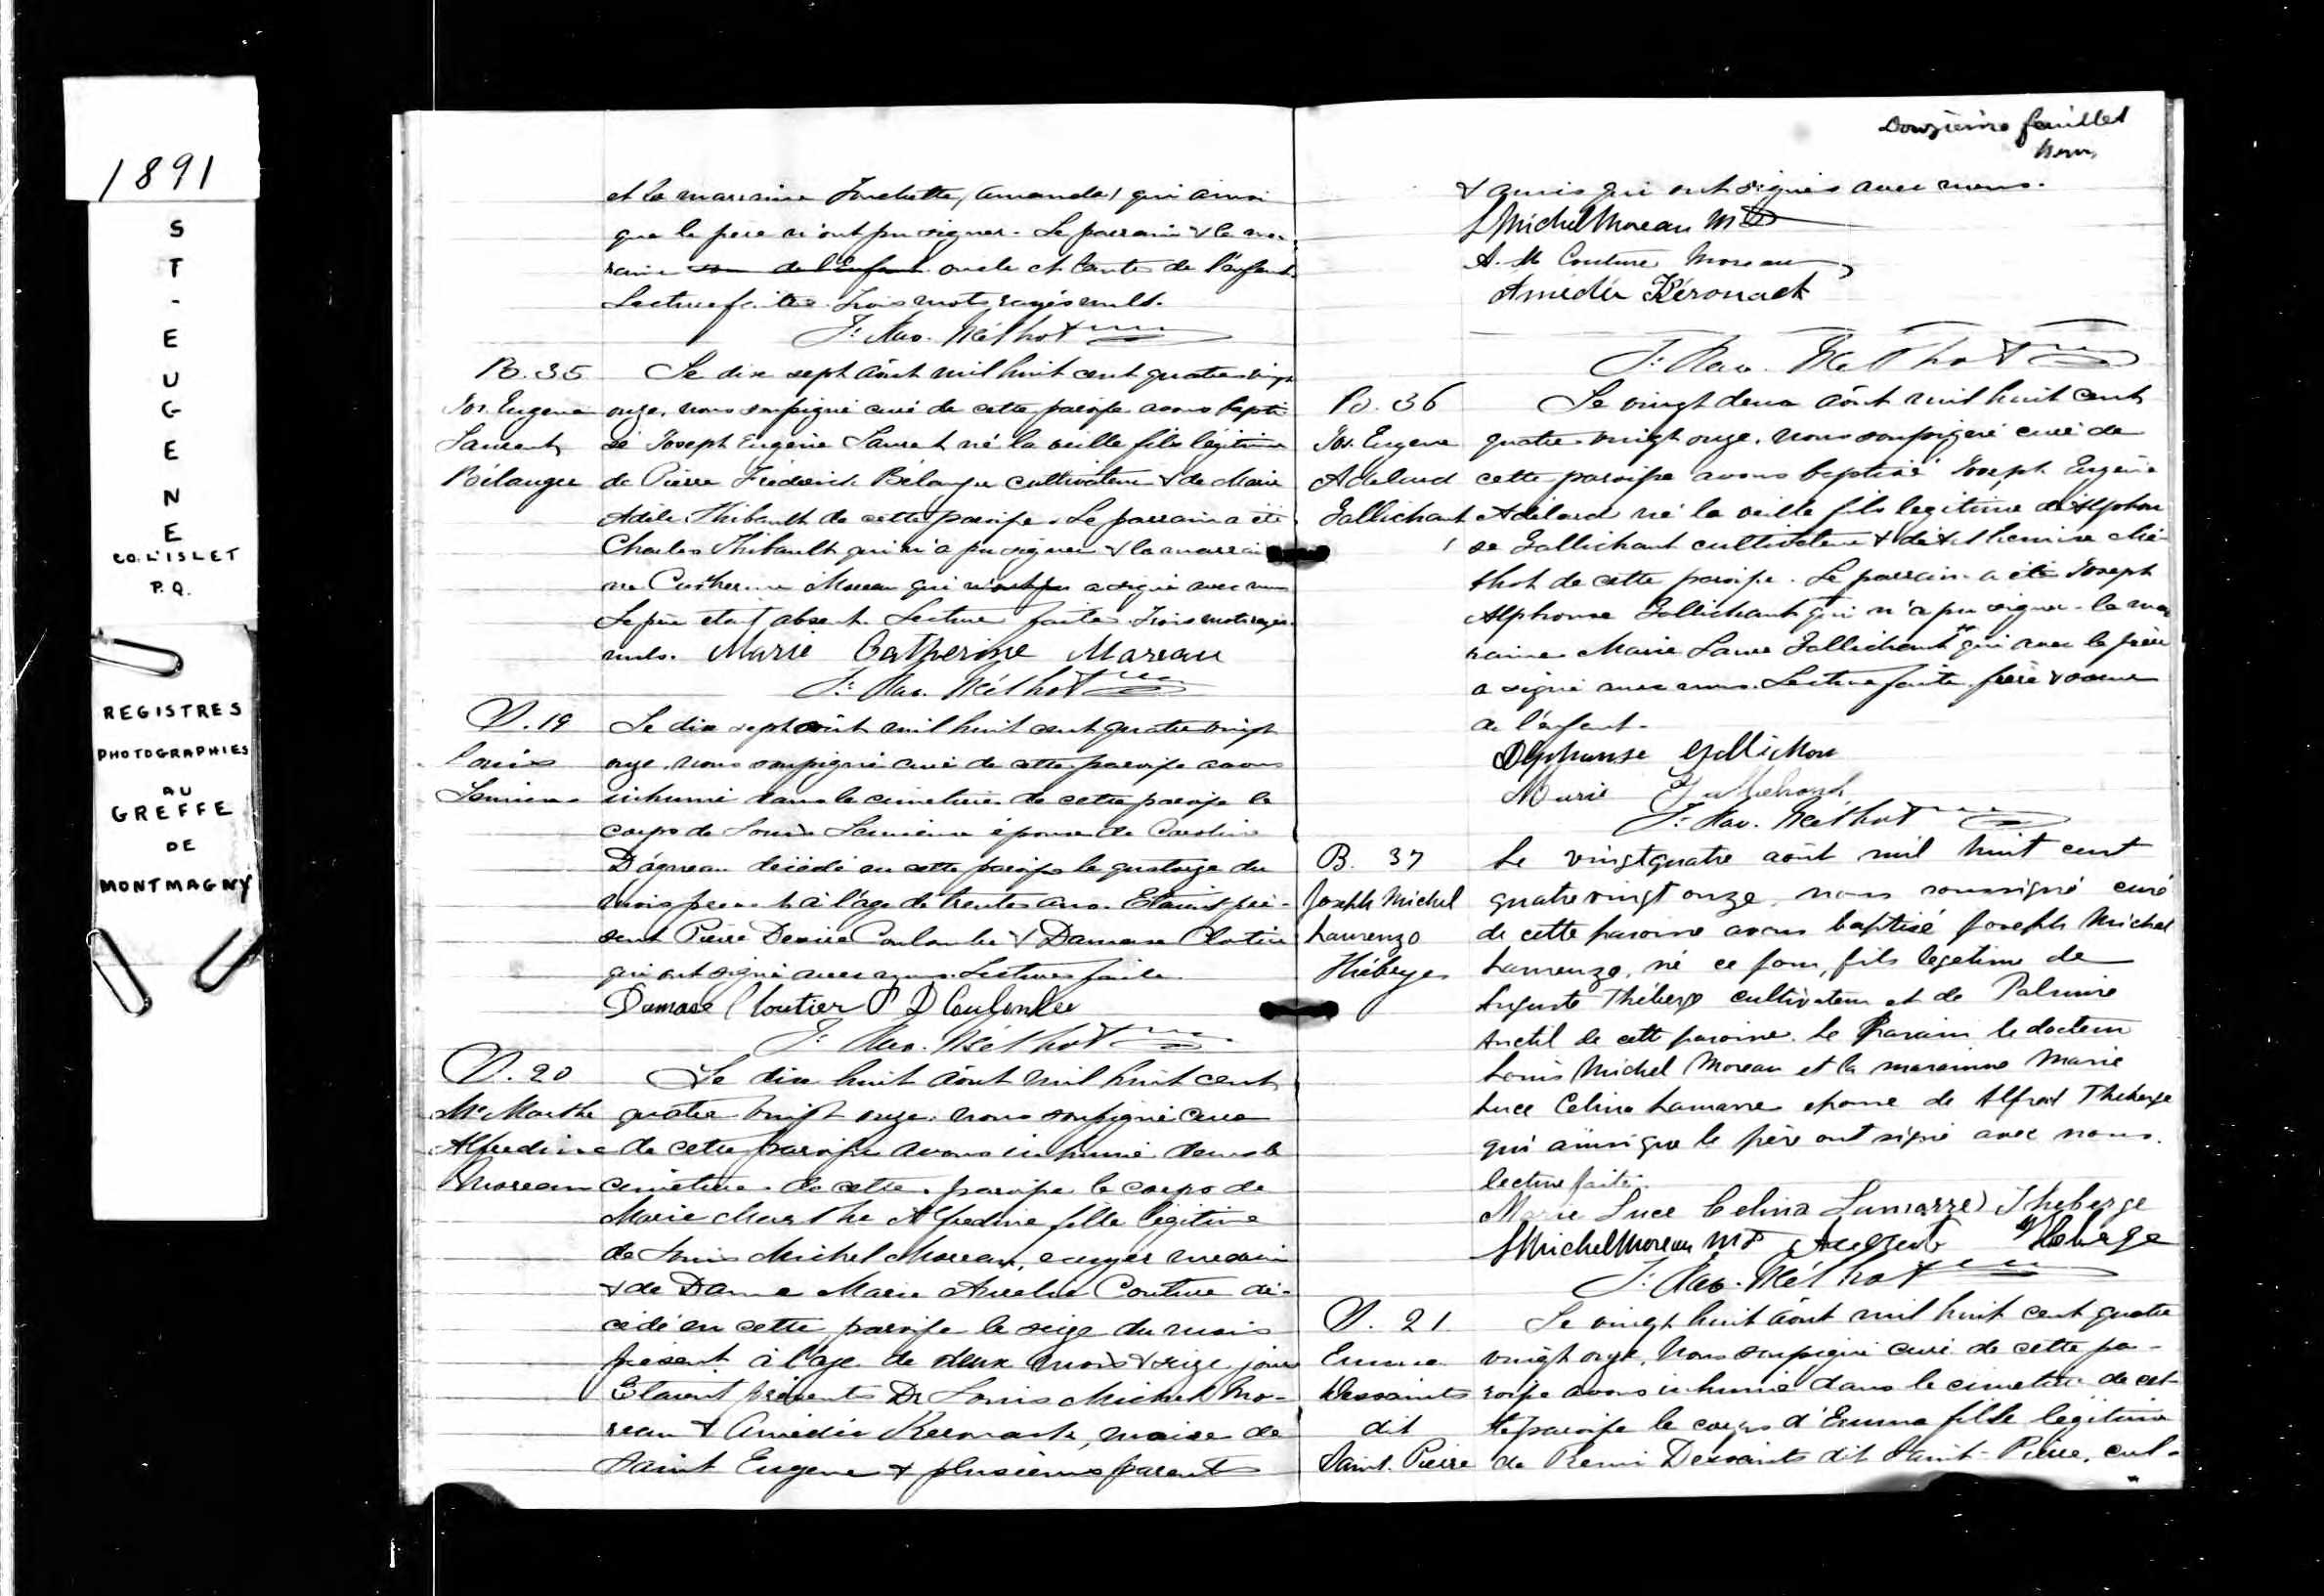 1891
ST-EUGENE
CO. L'ISLET
P.Q.
REGISTRES
PHOTOGRAPHIES
AU
GREFFE
DE
MONTMAGNY
et la marraine amanda qui ainsi
que le père n'ont pu signer. Le parrain & la mar
raine de l'Enfant oncle et tante de l'enfant
Lecture faite. Trois mots rayés nuls.
F: Rao. Méthot
B. 35
Jos. Eugene
Laurent
Bélanger
Le dix sept août mil huit cent quatre vingt
onze, nous soussigné curé de cette paroisse avons bapti
sé Joseph Eugène Laurent né la veille fils légitime
de Pierre Fréderick Bélanger cultivateur & de Marie
Adèle Thibault de cette paroisse. Le parrain a été
Charles Thibault qui n'a pu signer & la marrai
ne Catherine Moreau qui a signé avec nous
Le père étant absent. Lecture faite. Trois mots rayés
nuls. Marie Catherine Moreau
F: Rao. Méthot
S. 19
Louis
Lemieux
Le dix sept août mil huit cent quatre vingt
onze, nous soussigné curé de cette paroisse avons
inhumé dans le cimetière de cette paroisse le
corps de Louis Lemieux époux de Caroline
Dagneau décédé en cette paroisse le quatorze du
mois présent à l'age de trente ans. Etaient pré-
sent Pierre Desire Coulombe & Damase Cloutier
qui ont signé avec nous. Lecture faite
Damase Cloutier P D Coulombe
F: Rao. Méthot
S. 20
Me Marthe
Alfredine
Moreau
Le dix huit août mil huit cent
quatre vingt onze, nous soussigné curé
de cette paroisse avons inhumé dans le
cimetière de cette paroisse le corps de
Marie Marthe Alfredine fille légitime
de Louis Michel Moreau, ecuyer medecin
& de Dame Marie Amélie Couture dé-
cédé en cette paroisse le seize du mois
present à l'age de deux mois & seize jours
Etaient présents Dr Louis Michel Mo-
reau & Amédée Kerouack, maire de
Saint Eugene & plusieurs parents
Douzième feuillet
& amis qui ont signés avec nous.
L Michel Moreau MD
A. M Couture Moreau
Amédée Kérouack
F: Rao. Méthot
B. 36
Jos. Eugene
Adelard
Gallichant
Le vingt deux août mil huit cent
quatre vingt onze, nous soussigné curé de
cette paroisse avons baptisé Joseph Eugène
Adélard né la veille fils legitime de Alphon
se Gallichant cultivateur & de Mé-
thot de cette paroisse. Le parrain a été Joseph
Alphonse Gallichant qui n'a pu signer. la mar
raine Marie Laure Gallichant qui avec le père
a signé avec nous. Lecture faite. frère & soeur
de l'enfant.
Alphonse Gallichon
Marie Gallichant
F: Rao. Méthot
B. 37
Joseph Michel
Laurenzo
Théberge
Le vingt quatre août mil huit cent
quatre vingt onze, nous soussigné curé
de cette paroisse avons baptisé Joseph Michel
Laurenzo, né ce jour, fils legetime de
Auguste Théberge cultivateur et de Palmire
Anctil de cette paroisse. Le Parain le docteur
Louis Michel Moreau et la marainne Marie
Luce Celina Lamarre epouse de Alfred Theberge
qui ainsi que le père ont signé avec nous.
lecture faite.
Marie Luce Celina Lamarre Theberge
L Michel Moreau MD August Theberge
F: Rao. Méthot
S. 21
Emma
Dessaints
dit
Saint. Pierre
Le vingt huit août mil huit cent quatre
vingt onze, Nous soussigné curé de cette pa-
roisse avons inhumé dans le cimetière de cet-
te paroisse le corps d'Emma fille légitime
de Remi Dessaints dit Saint-Pierre, cul-